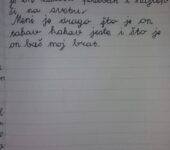 je on
či na svetu.
Meni je drago što je on
takav kakav jeste i što je
on baš moj brat.